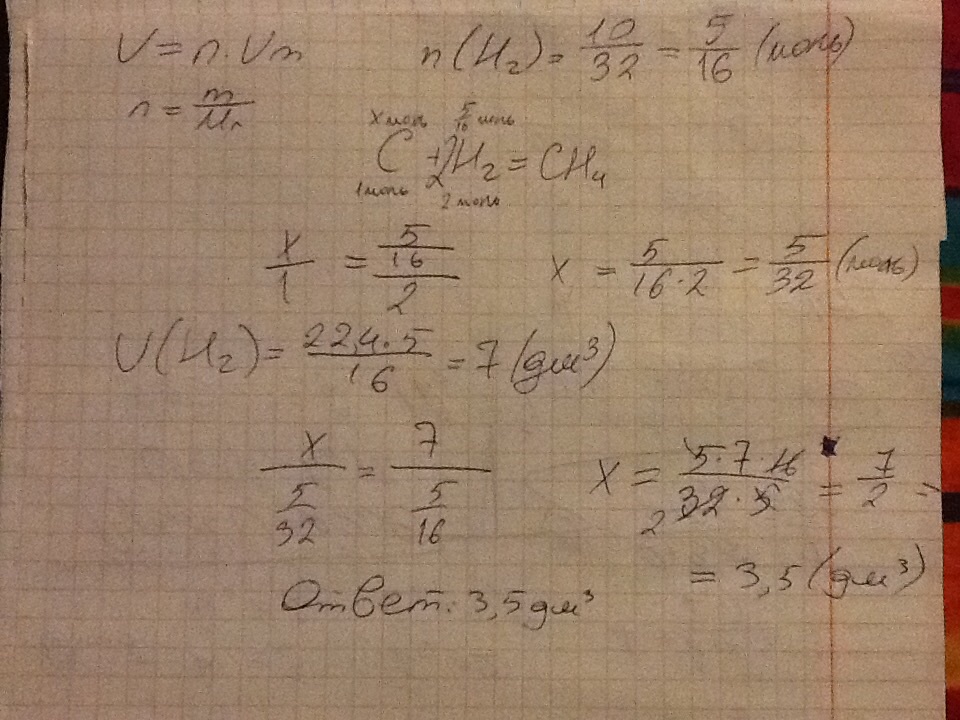 V = n · Vm
n(H₂) = 10/32 = 5/16 (моль)
n = m/Mr
x моль 5/16 моль
C + 2H₂ = CH₄
1 моль 2 моль
x/1 = (5/16)/2
x = 5/(16·2) = 5/32 (моль)
V(H₂) = (22,4·5)/16 = 7 (дм³)
x/(5/32) = 7/(5/16)
x = (5·7·16)/(32·5) = 7/2 =
2
= 3,5 (дм³)
Ответ: 3,5 дм³